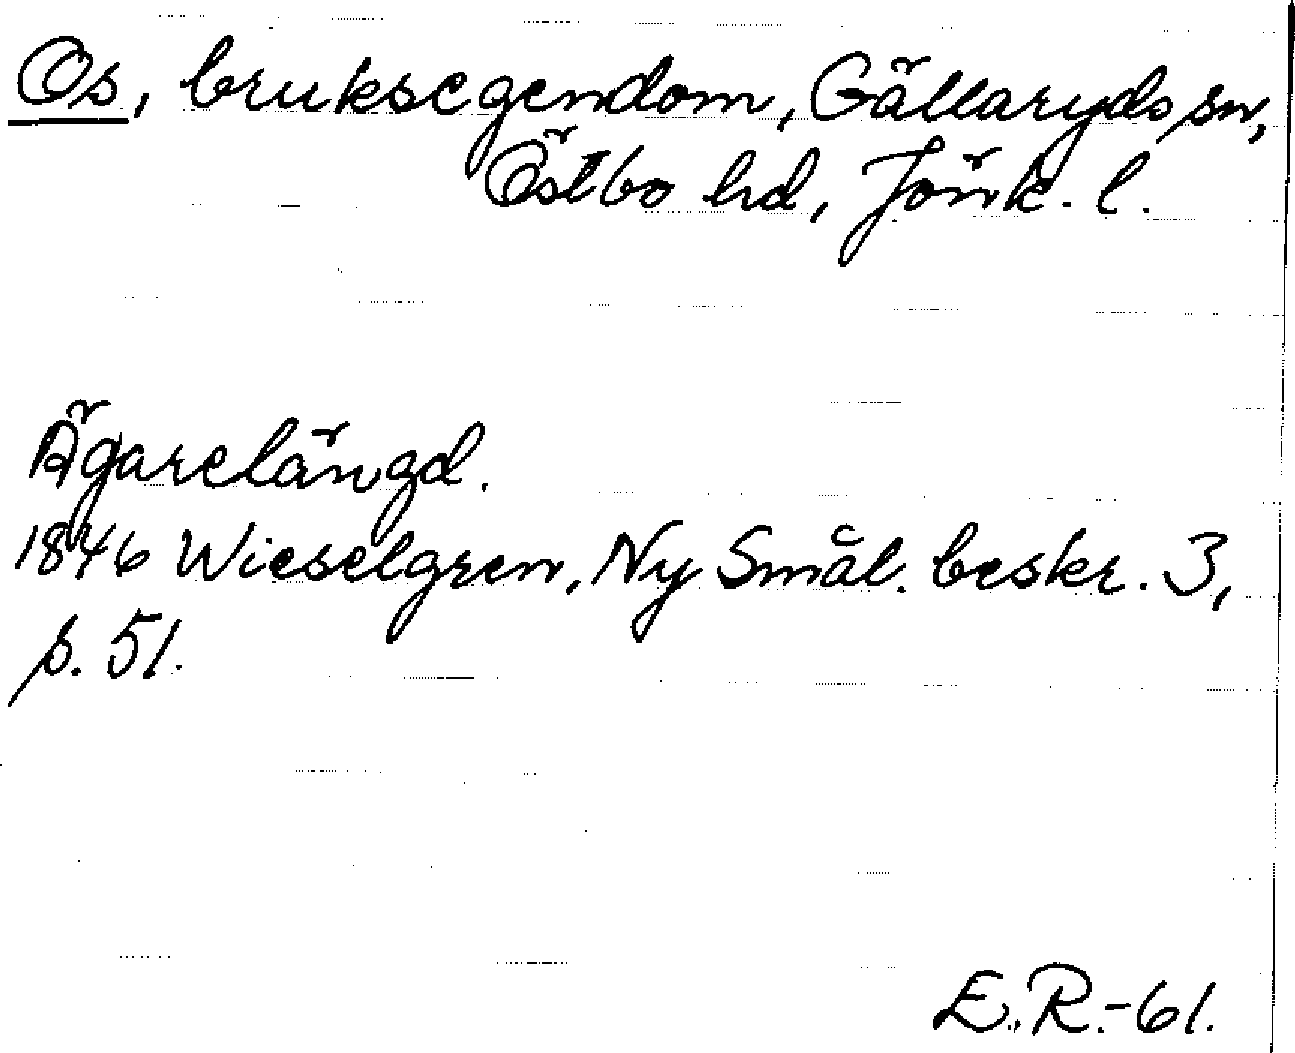 Os, bruksegendom, Gällaryds sn,
Östbo hd, Jönk. l.
Ägarelängd.
1846 Wieselgren, Ny Smål. beskr. 3,
s. 51.
E.R.-61.